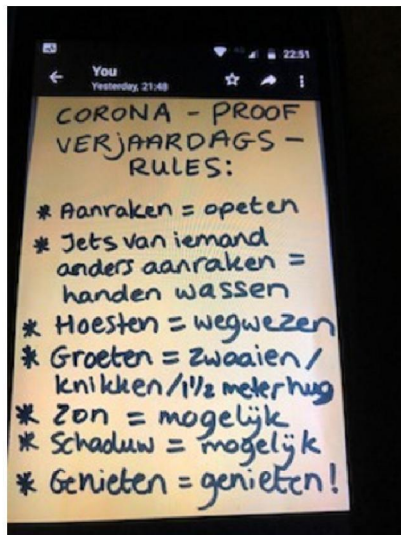 22:51
You
Yesterday, 21:48
CORONA - PROOF
VERJAARDAGS -
RULES:
* Aanraken = opeten
* Iets van iemand
anders aanraken =
handen wassen
* Hoesten = wegwezen
* Groeten = zwaaien /
knikken / 1½ meter hug
* Zon = mogelijk
* Schaduw = mogelijk
* Genieten = genieten!